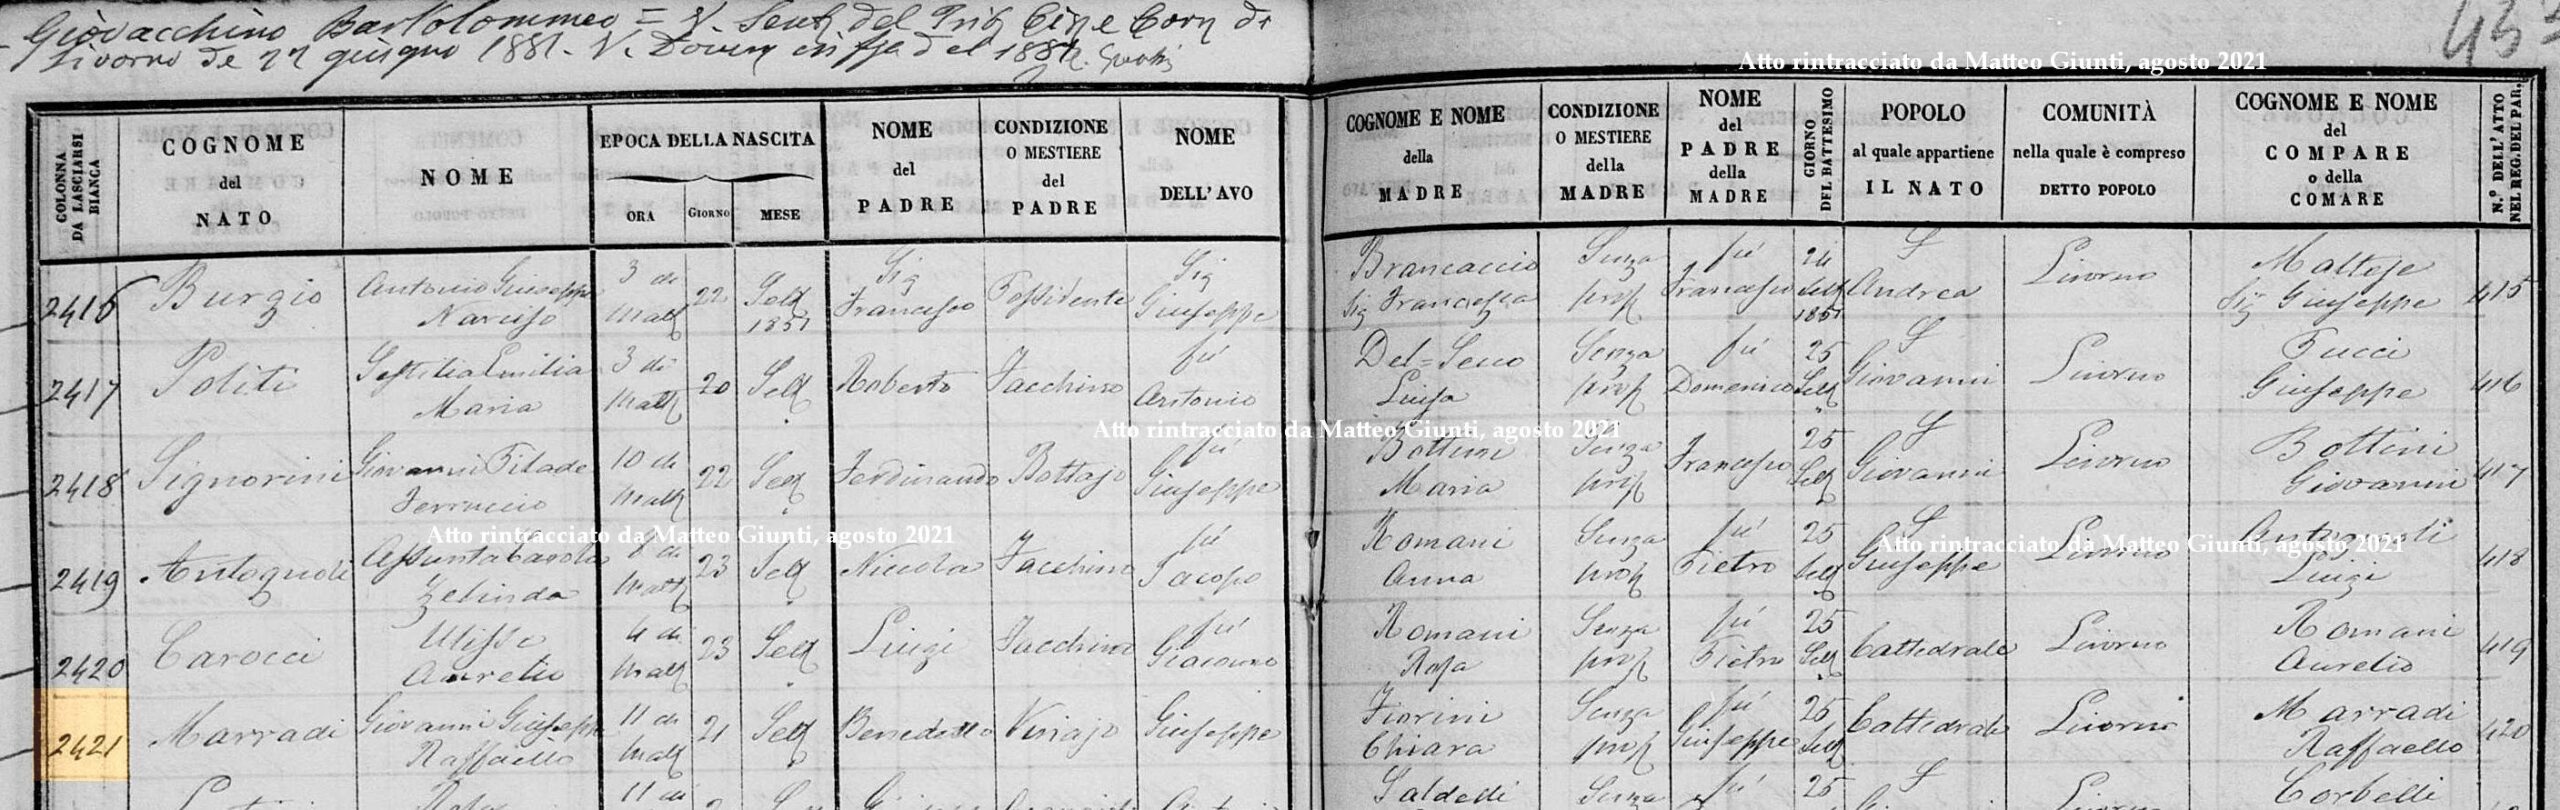 Giovacchino Bartolommeo = V. Sent del Trib Civ e Corr di
Livorno de 22 giugno 1881. V. del 1881
43
Atto rintracciato da Matteo Giunti, agosto 2021
COLONNA DA LASCIARSI BIANCA
COGNOME del NATO
NOME
EPOCA DELLA NASCITA
ORA GIORNO MESE
NOME del PADRE
CONDIZIONE O MESTIERE del PADRE
NOME DELL'AVO
COGNOME E NOME della MADRE
CONDIZIONE O MESTIERE della MADRE
NOME del PADRE della MADRE
GIORNO DEL BATTESIMO
POPOLO al quale appartiene IL NATO
COMUNITÀ nella quale è compreso DETTO POPOLO
COGNOME E NOME del COMPARE o della COMARE
N.º DELL'ATTO NEL REG. DEL PAR.
2416 Burgio Antonio Giuseppe Narciso 3 di Matt 22 Sett 1851 Sig Francesco Possidente Sig Giuseppe Brancaccio Sig Francesca Senza prof fu Francesco 24 Sett 1851 S Andrea Livorno Maltese Sig Giuseppe 415
2417 Politi Settilia Emilia Maria 3 di Matt 20 Sett Roberto Facchino fu Antonio Del=Seco Luisa Senza prof fu Domenico 25 Sett S Giovanni Livorno Pucci Giuseppe 416
Atto rintracciato da Matteo Giunti, agosto 2021
2418 Signorini Giovanni Pilade Ferruccio 10 di Matt 22 Sett Ferdinando Bottajo fu Giuseppe Bottini Maria Senza prof Francesco 25 Sett S Giovanni Livorno Bottini Giovanni 417
Atto rintracciato da Matteo Giunti, agosto 2021
Atto rintracciato da Matteo Giunti, agosto 2021
2419 Antognoli Assunta Carola Zelinda 8 di Matt 23 Sett Niccola Facchino fu Jacopo Romani Anna Senza prof fu Pietro 25 Sett S Giuseppe Livorno Antognoli Luigi 418
2420 Carocci Ulisse Aurelio 4 di Matt 23 Sett Luigi Facchino fu Giacomo Romani Rosa Senza prof fu Pietro 25 Sett Cattedrale Livorno Romani Aurelio 419
2421 Marradi Giovanni Giuseppe Raffaello 11 di Matt 21 Sett Benedetto Vinajo Giuseppe Fiorini Chiara Senza prof fu Giuseppe 25 Sett Cattedrale Livorno Marradi Raffaello 420
Rosa 11 di Saldelli Senza fu 25 S Corbelli